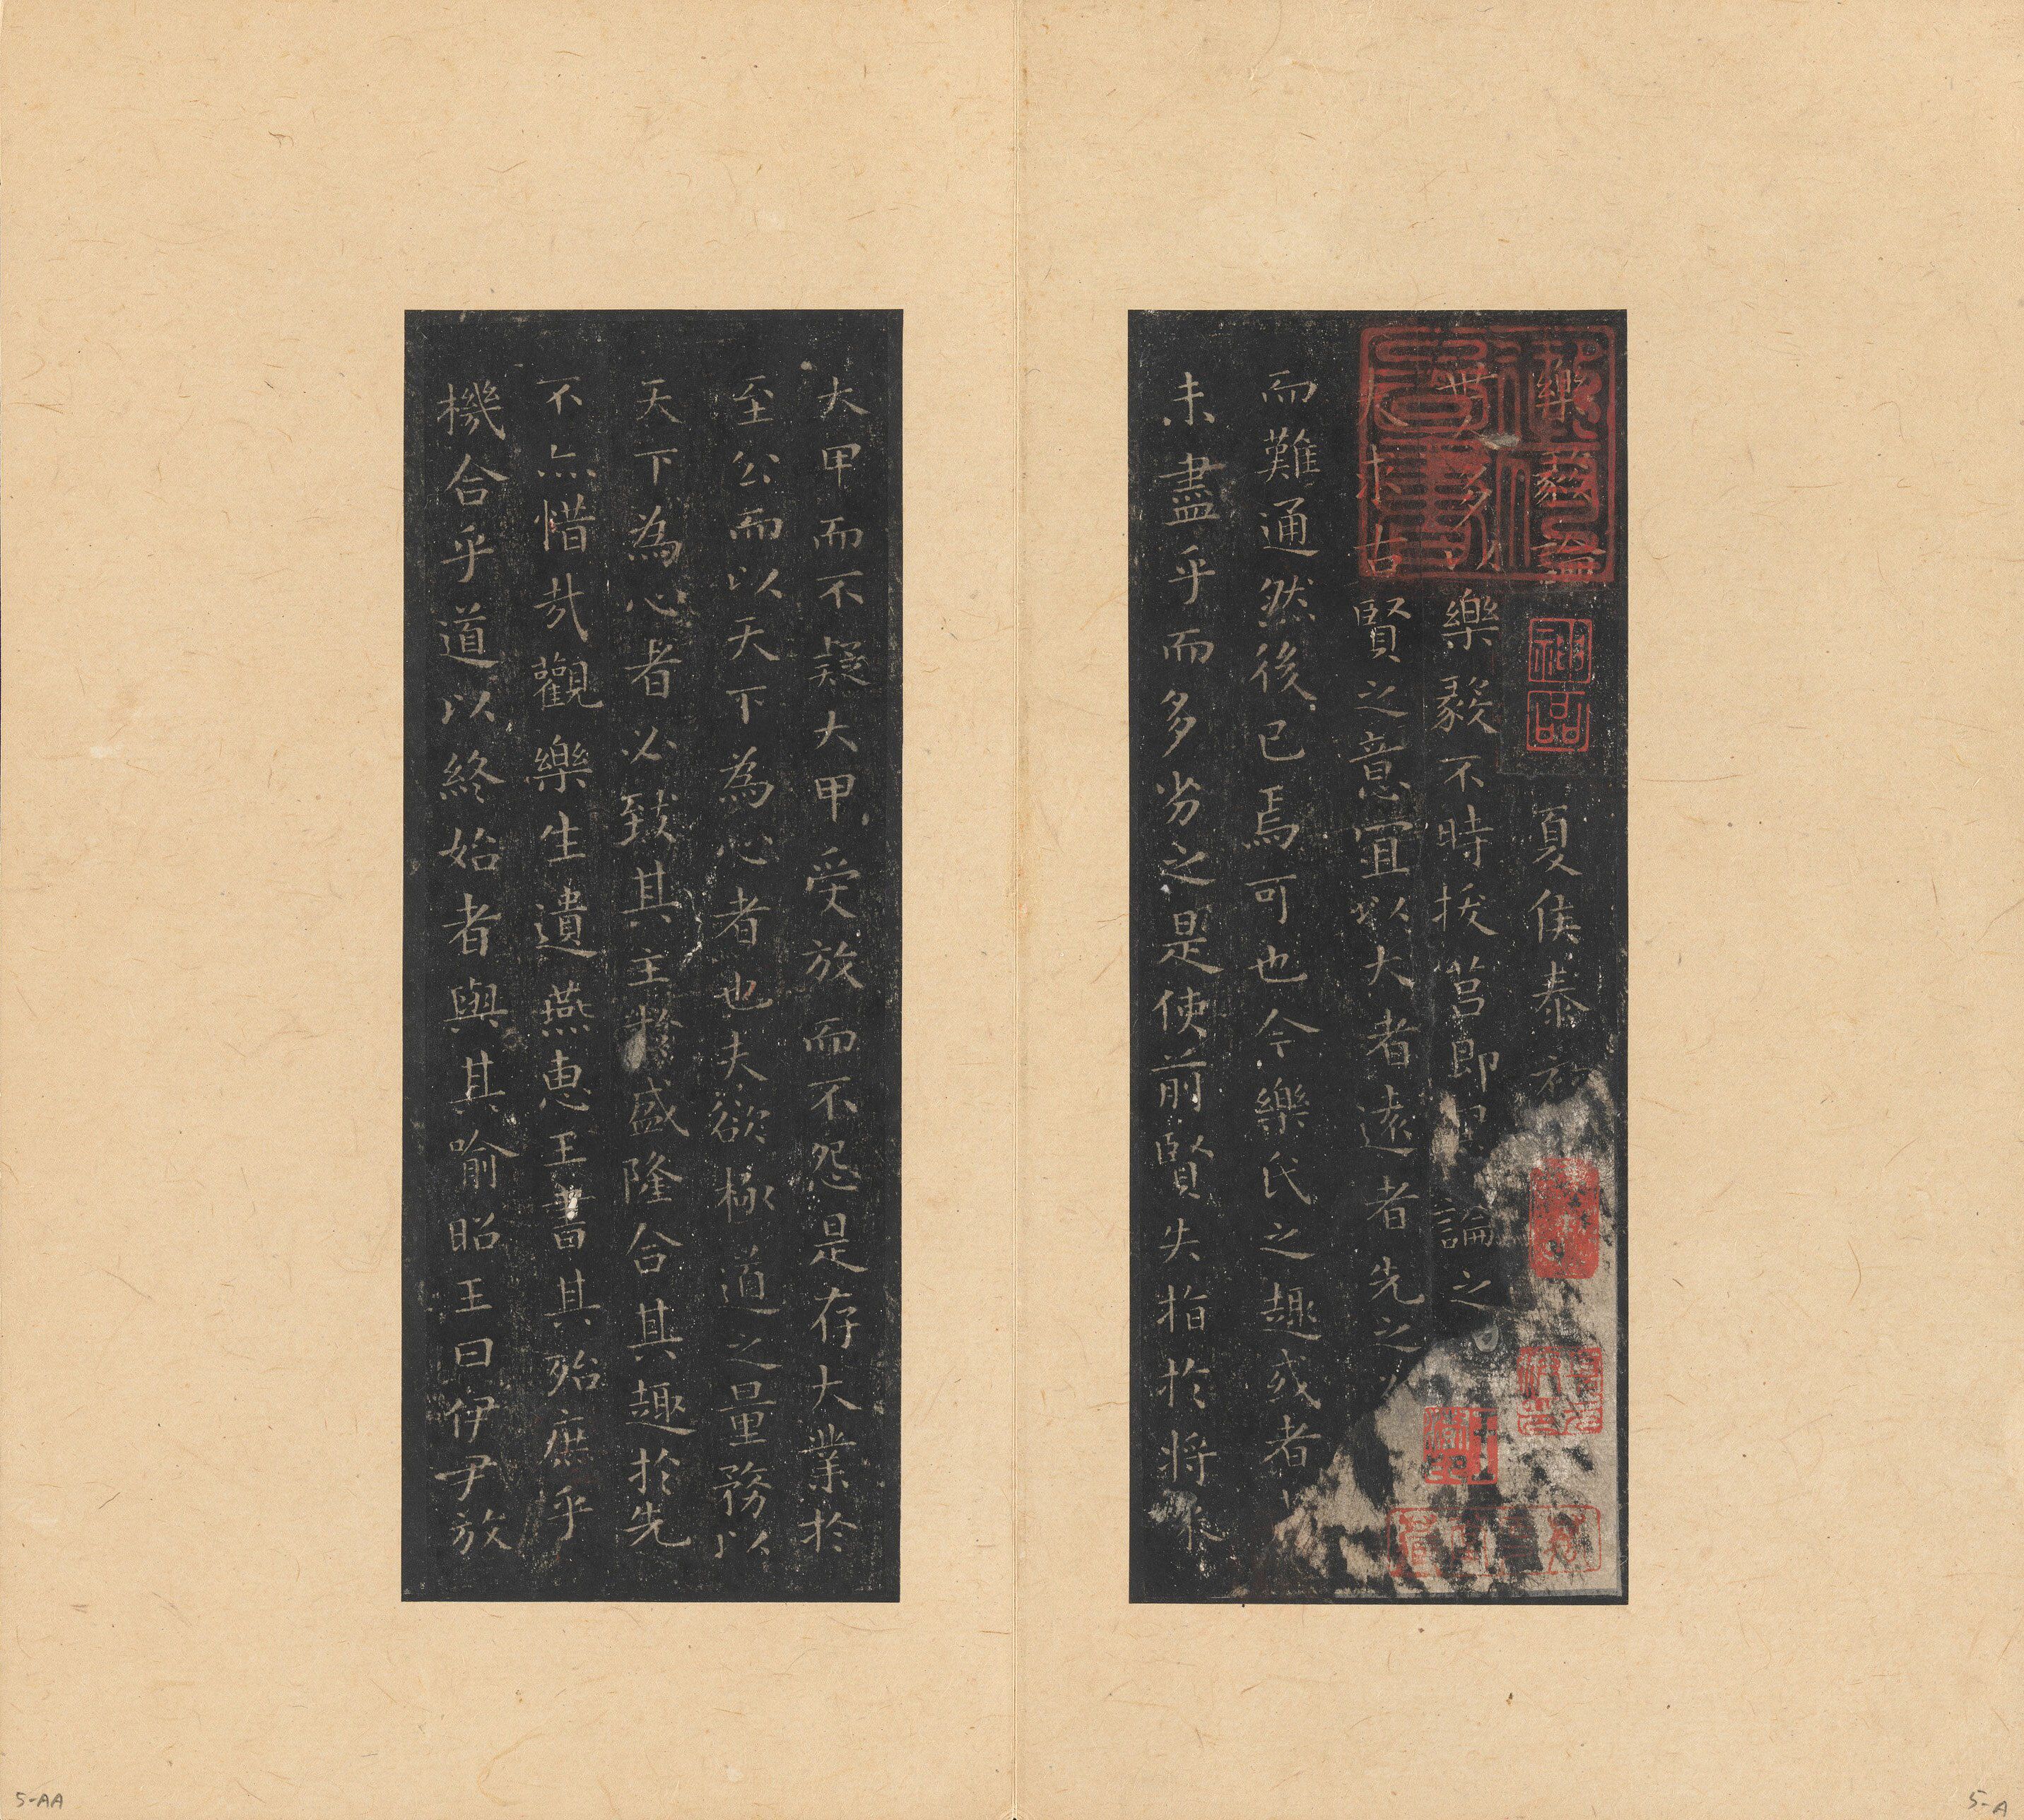 樂毅論 夏侯泰初
世人多以樂毅不時拔莒即墨論之
求古賢之意宜以大者遠者先之
而難通然後已焉可也今樂氏之趣或者
未盡乎而多劣之是使前賢失指於將來
不亦惜哉觀樂生遺燕惠王書其殆庶乎
機合乎道以終始者與其喻昭王曰伊尹放
大甲而不疑大甲受放而不怨是存大業於
至公而以天下為心者也夫欲極道之量務以
天下為心者必致其主於盛隆合其趣於先
神品
5-AA
5-A